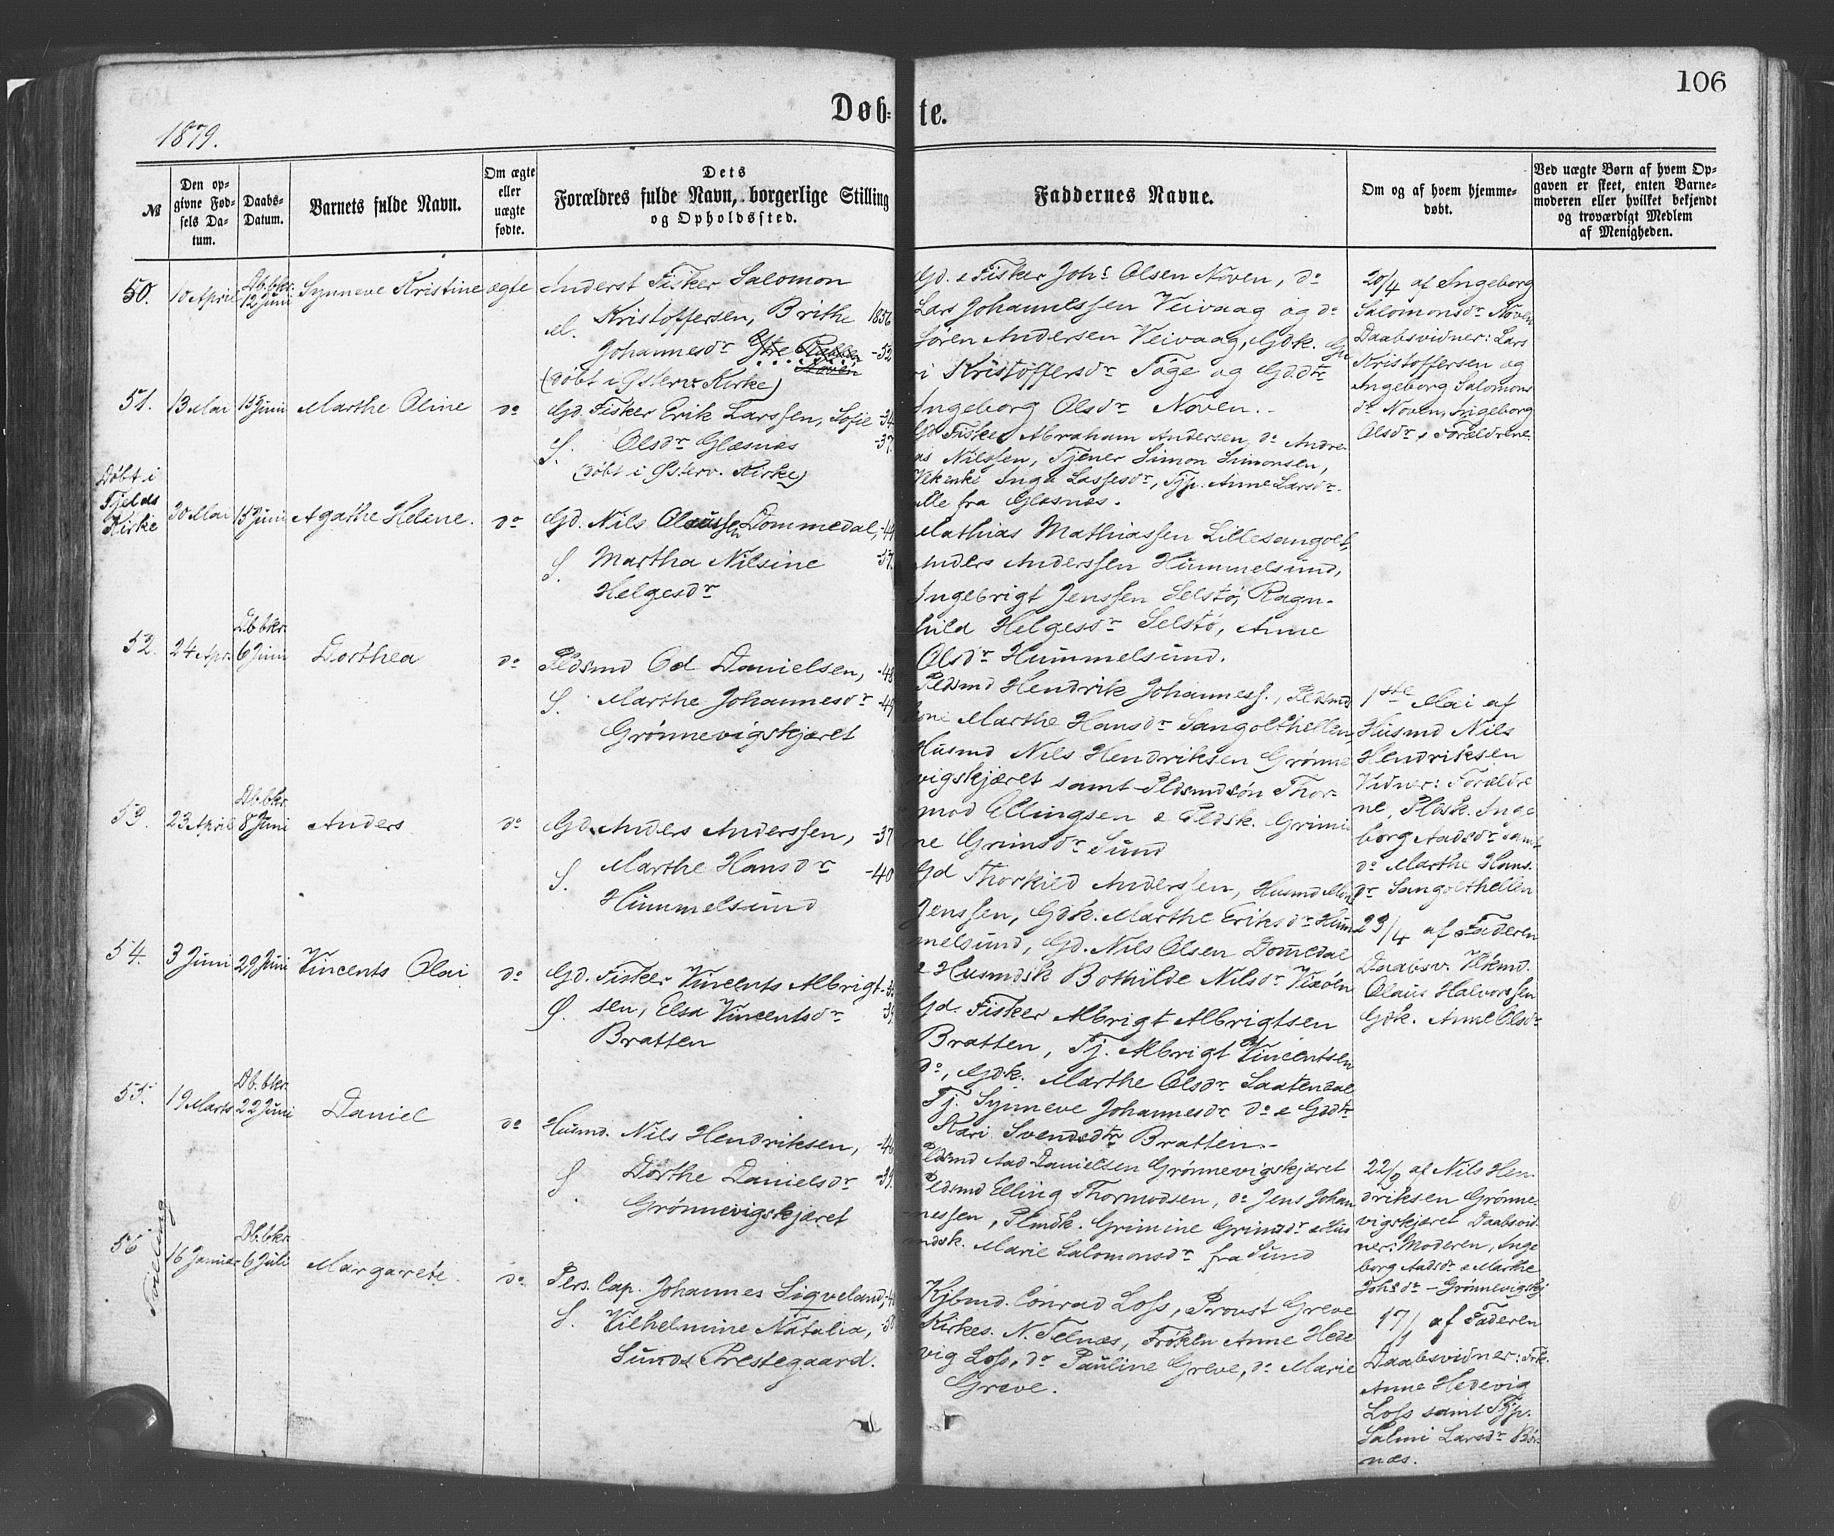 106
Døb- te.
1879.
№
Den op-
givne Fød-
sels Da-
tum.
Daabs-
Datum.
Barnets fulde Navn.
Om ægte
eller
uægte
fødte.
Dets
Forældres fulde Navn, borgerlige Stilling
og Opholdssted.
Faddernes Navne.
Om og af hvem hjemme-
døbt.
Ved uægte Børn af hvem Op-
gaven er skeet, enten Barne-
moderen eller hvilket bekjendt
og troværdigt Medlem
af Menigheden.
50. 10 April Db. bkr. 12 Juni Synneve Kristine ægte
Inderst Fisker Salomon
Kristoffersen, Brithe 1856
Johannesdr Ytre -52
Noven
(døbt i Østerv. Kirke)
Gd. & Fisker Johs Olsen Noven, do
Lars Johannessen Veivaag og do
Søren Andersen Veivaag, Gdk.
ri Kristoffersdr Tøge og Gd.dtr
Ingeborg Olsdr Noven.
20/4 af Ingeborg
Salomonsdr Noven
Daabsvidner: Lars
Kristoffersen og
Ingeborg Salomons
dr Noven, Ingeborg
Olsdr & Forældrene
51. 13 Mai 15 Juni Marthe Oline do
Gd. Fisker Erik Larssen, Sofie -34
S. Olsdr Glæsnæs -37
(døbt i Østerv. Kirke)
Gd. Fisker Abraham Andersen, do Andre
as Nilssen, Tjener Simon Simonsen,
Inga Lassesdr, Tjp. Anne Larsdr
alle fra Glæsnæs.
Døbt i
Fjelds
Kirke
30 Mai 15 Juni Agathe Helene. do
Gd. Nils Olaussen Dommedal, -44
S. Martha Nilsine -37.
Helgesdr
Mathias Mathiassen Lillesangolt,
Anders Anderssen Hummelsund,
Ingebrigt Jenssen Selstø, Ragn-
hild Helgesdr Selstø, Anne
Olsdr Hummelsund.
52. 24 Apr. Db. bkr. 6 Juni Dorthea do
Pldsmd Od Danielsen, -48
S. Marthe Johannesdr -49
Grønnevigskjæret
Pldsmd Hendrik Johanness., Pldsmd
kone Marthe Hansdr Sangolthellen,
Husmd Nils Hendriksen Grønne
vigskjæret samt Pldsmdsøn Thor-
mod Ellingsen & Pldsk. Grimi
ne Grimsdr Sund
1ste Mai af
Husmd Nils
Hendriksen
Vidner: Forældre
ne, Pldsk. Inge
borg Aadsdr samt
do Marthe Hans-
dr Sangolthellen
53. 23 April Db. bkr. 8 Juni Anders do
Gd. Anders Anderssen, -37
S. Marthe Hansdr -40
Hummelsund
Gd Thorkild Anderssen, Husmd
Jenssen, Gdk. Marthe Eriksdr Hum
melsund, Gd. Nils Olsen Domedal
& Husmdsk Bothilde Nilsdr Vixøen
29/4 af Faderen
Daabsv.
Olaus Halvorssen
Gdk. Anne Olsdr
54. 3 Juni 29 Juni Vincents Olai do
Gd. Fisker Vincents Albrigt-
Ø. sen, Elsa Vincentsdr -39
Bratten
Gd. Fisker Albrigt Albrigtsen
Bratten, Tj. Albrigt Vincentsen
do, Gdk. Marthe Olsdr Laatendal
Tj. Synneve Johannesdr do & Gddtr
Kari Svendsdtr Bratten.-
55. 19 Marts Db. bkr. 22 Juni Daniel do
Husmd. Nils Hendriksen, -46
S Dorthe Danielsdr -39.
Grønnevigskjæret
Pldsmd Aad Danielsen Grønnevigskjæret
Pldsmd Elling Thormodsen, do Jens Johan
nessen, Plmdk. Grimine Grimsdr & Hus
mdsk. Marie Salomonsdr fra Sund
22/3 af Nils Hen-
driksen Grønne-
vigskjæret Daabsvid-
ner: Moderen, Inge
borg Aadsdr & Marthe
Johsdr - Grønnevigskj
56 Tvilling 16 Januar Db. bkr. 6 Juli Margarete. do
Pers. Cap. Johannes Sigveland, -4
S. Vilhelmine Natalia, -50
Sunds Prestegaard.
Kjbmd. Conrad Loss, Provst Greve
Kirkes. N. Telnæs, Frøken Anne Hede
vig Loss, do Pauline Greve, do Marie
Greve.
17/1 af Faderen
Daabsvidner: Frk.
Anne Hedevig
Loss samt Tjp.
Salmi Larsdr Bør-
næs.